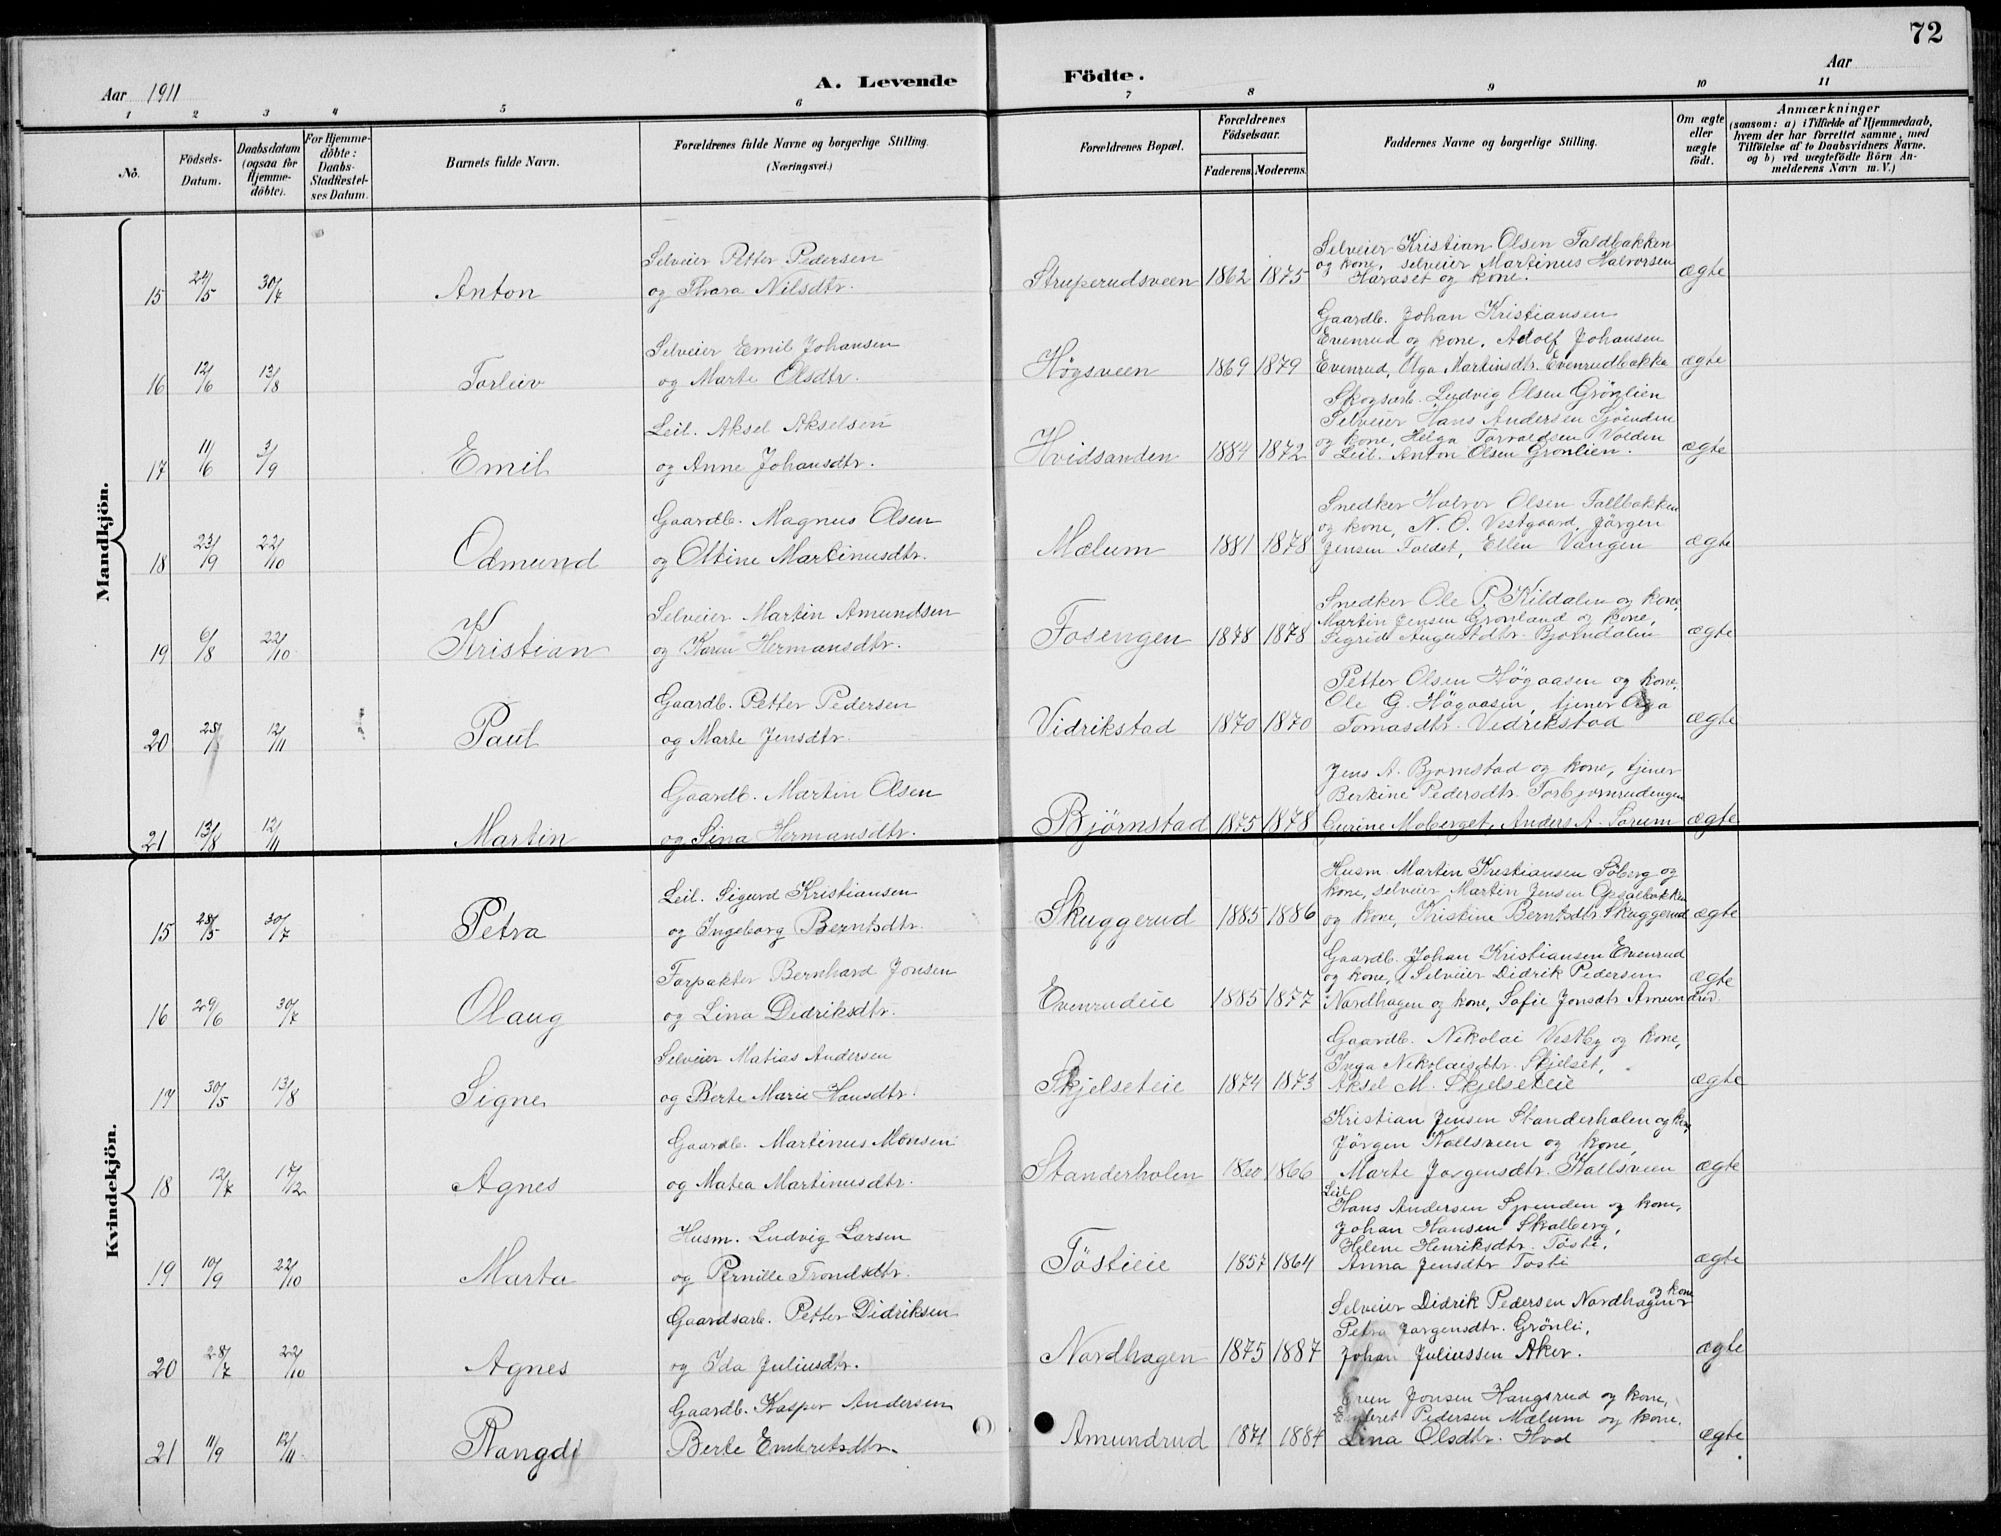 72
Aar 1911
A. Levende Födte.
Aar
1 2 3 4 5 6 7 8 9 10 11
No.
Födsels-Datum.
Daabsdatum (ogsaa for Hjemme-döbte).
For Hjemme-döbte: Daabs-Stadfæstel-ses Datum.
Barnets fulde Navn.
Forældrenes fulde Navne og borgerlige Stilling.
(Næringsvei.)
Forældrenes Bopæl.
Forældrenes Födselsaar.
Faderens. Moderens.
Faddernes Navne og borgerlige Stilling.
Om ægte eller uægte födt.
Anmærkninger
(saasom: a) i Tilfælde af Hjemmedaab, hvem der har forrettet samme, med Tilföielse af to Daabsvidners Navne, og b) ved uægtefödte Börn An-melderens Navn m. V.)
Mandkjön.
15 24/5 30/7 Anton
Selveier Petter Pedersen
og Thora Nilsdtr.
Struperudsveen 1862 1875
Selveier Kristian Olsen Faldbakken
og kone, selveier Martinus Halvorsen
Haraset og kone.
ægte
16 12/6 13/8 Torleiv
Selveier Emil Johansen
og Marte Olsdtr.
Høgsveen 1869 1879
Gaardb. Johan Kristiansen
Evenrud og kone, Adolf Johansen
Evenrud, Olga Martinsdtr. Evenrudbakke
ægte
17 11/6 3/9 Emil
Leil. Aksel Akselsen
og Anne Johansdtr.
Hvidsanden 1884 1872
Skogsarb. Ludvig Olsen Grönlien
Selveier Hans Andersen Sjöenden
og kone, Helga Torvaldsen Volden
Leil. Anton Olsen Grönlien.
ægte
18 23/9 22/10 Odmund
Gaardb. Magnus Olsen
og Oltine Martinusdtr.
Mælum 1881 1878
Snedker Halvor Olsen Fallbakken
og kone, N. O. Vestgaard, Jörgen
Jensen Foldet, Ellen Vangen
ægte
19 6/8 22/10 Kristian
Selveier Martin Amundsen
og Karen Hermansdtr.
Fosengen 1878 1878
Snedker Ole P. Kildalen og kone,
Martin Jensen Grönland og kone,
Sigrid Augustdtr. Bjorndalen
ægte
20 28/ 12/11 Paul
Gaardb. Petter Pedersen
og Marte Jensdtr.
Vidrikstad 1870 1870
Petter Olsen Högaasen og kone,
Ole G. Högaasen, tjener Olga
Tomasdtr. Vidrikstad
ægte
21 13/8 12/11 Martin
Gaardb. Martin Olsen
og Sina Hermansdtr.
Björnstad 1875 1878
Jens A. Bjornstad og kone, tjener
Berkine Pedersdtr. Torbjornrudengen
Gurine Moberget, Anders A. Sorum
ægte
Kvindekjön.
15 28/5 30/7 Petra
Leil. Sigurd Kristiansen
og Ingeborg Berntsdtr.
Skuggerud 1885 1886
Husm. Martin Kristiansen Söberg og
kone, selveier Martin Jensen Opsalbakken
og kone, Kristine Berntsdtr. Skuggerud
ægte
16 29/6 30/7 Olaug
Forpakter Bernhard Jonsen
og Lina Didriksdtr.
Evenrudeie 1885 1877
Gaardb. Johan Kristiansen Evenrud
og kone, Selveier Didrik Pedersen
Nordhagen og kone, Sofie Jonsdtr. Amundrud.
ægte
17 30/5 13/8 Signe
Selveier Matias Andersen
og Berte Marie Hansdtr.
Skjelseteie 1874 1873
Gaardb. Nikolai Vestby og kone,
Inga Nikolaisdtr. Skjelset,
Aksel M. Skjelseteie
ægte
18 12/7 17/12 Agnes
Gaardb. Martinus Monsen
og Matea Martinusdtr.
Standerholen 1860 1866
Kristian Jensen Standerholen og kone,
Jörgen Kollsveen og kone,
Marte Jorgensdtr. Kollsveen
ægte
19 10/9 22/10 Marta
Husm. Ludvig Larsen
og Pernille Trondsdtr.
Töstieie 1857 1864
Leil. Hans Andersen Sjoenden og kone,
Johan Hansen Skalberg,
Helene Henriksdtr. Tösti,
Anna Jensdtr Tosti
ægte
20 28/7 22/10 Agnes
Gaardsarb. Petter Didriksen
og Ida Juliusdtr.
Nordhagen 1875 1887
Selveier Didrik Pedersen Nordhagen og kone
Petra Jorgensdtr. Grönli,
Johan Juliussen Aker.
ægte
21 11/9 12/11 Rangdi
Gaardb. Kasper Andersen
Berte Embretsdtr.
Amundrud 1871 1884
Even Jonsen Hangsrud og kone,
Embret Pedersen Mælum og kone.
Lina Olsdtr. Hod
ægte